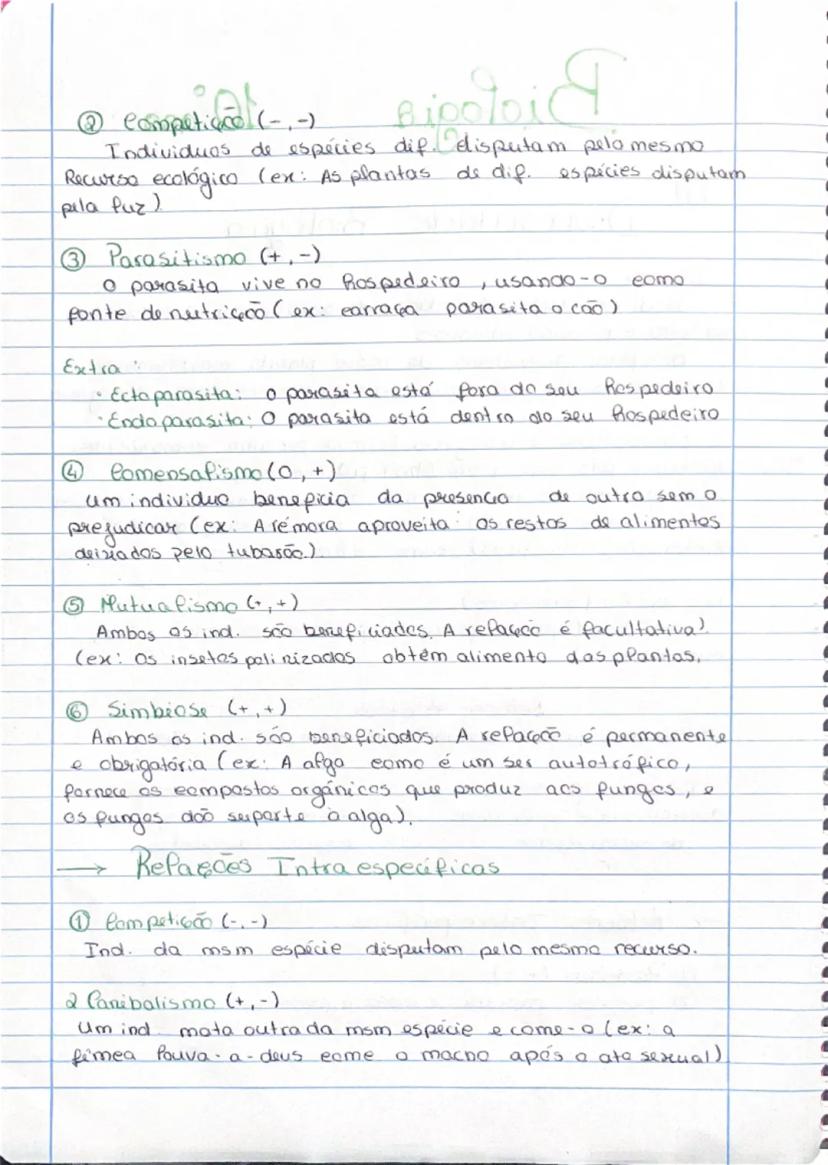 ② Competição (-,-)
Individuos de espécies dif. disputam pelo mesmo
Recurso ecológico (ex: As plantas de dif. espécies disputam
pela luz)
③ Parasitismo (+,-)
O parasita vive no hospedeiro, usando-o como
fonte de nutrição (ex: carraça parasita o cão)
Extra:
· Ectoparasita: o parasita está fora do seu hospedeiro
· Endoparasita: O parasita está dentro do seu hospedeiro
④ Comensalismo (0,+)
Um individuo beneficia da presença de outro sem o
prejudicar (ex: A rémora aproveita os restos de alimentos
deixados pelo tubarão.)
⑤ Mutualismo (+,+)
Ambos os ind. são beneficiados. A relação é facultativa).
(ex: Os insetos polinizados obtêm alimento das plantas.
⑥ Simbiose (+,+)
Ambos os ind. são beneficiados. A relação é permanente
e obrigatória (ex: A alga como é um ser autotrófico,
fornece os compostos orgânicos que produz aos fungos, e
os fungos dão suporte à alga).
→ Relações Intraespecíficas
① Competição (-,-)
Ind. da msm espécie disputam pelo mesmo recurso.
2 Canibalismo (+,-)
Um ind. mata outro da msm espécie e come-o (ex: a
fêmea louva-a-deus come o macho após o ato sexual)